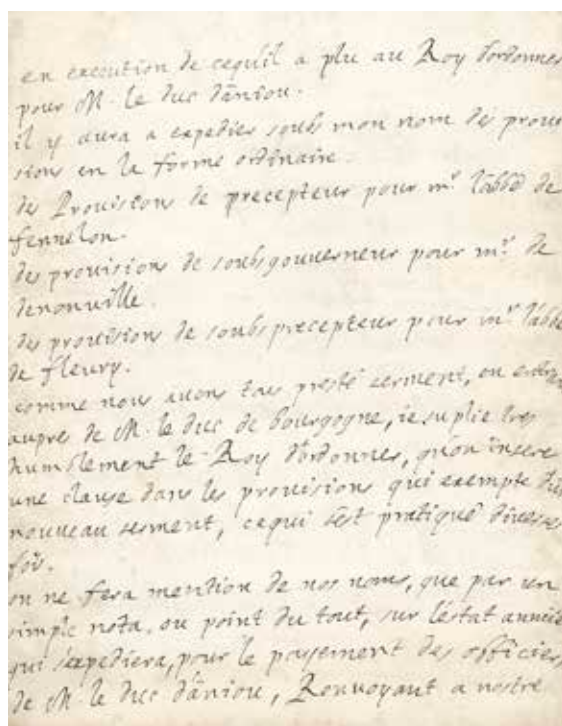 en execution de cequil a plu au Roy dordonner
pour M. le duc dâniou.
il y aura a expedier soubs mon nom des provi
sion en la forme ordinaire.
de Provision de precepteur pour mr. labbé de
fennelon.
des provision de soubsgouverneur pour mr. de
denonville.
des provision de soubsprecepteur pour mr. labbé
de fleury.
comme nous avons tous presté serment, en
aupres de M. le duc de bourgogne, ie suplie tres
humblement le Roy dordonner, quon insere
une clause dans les provisions qui exempte dun
nouveau serment, cequi sest pratiqué diverses
fois.
on ne fera mention de nos noms, que par un
simple nota, ou point du tout, sur lestat
qui sexpediera, pour le payement des officiers
de M. le duc dâniou, Renvoyant a nostre